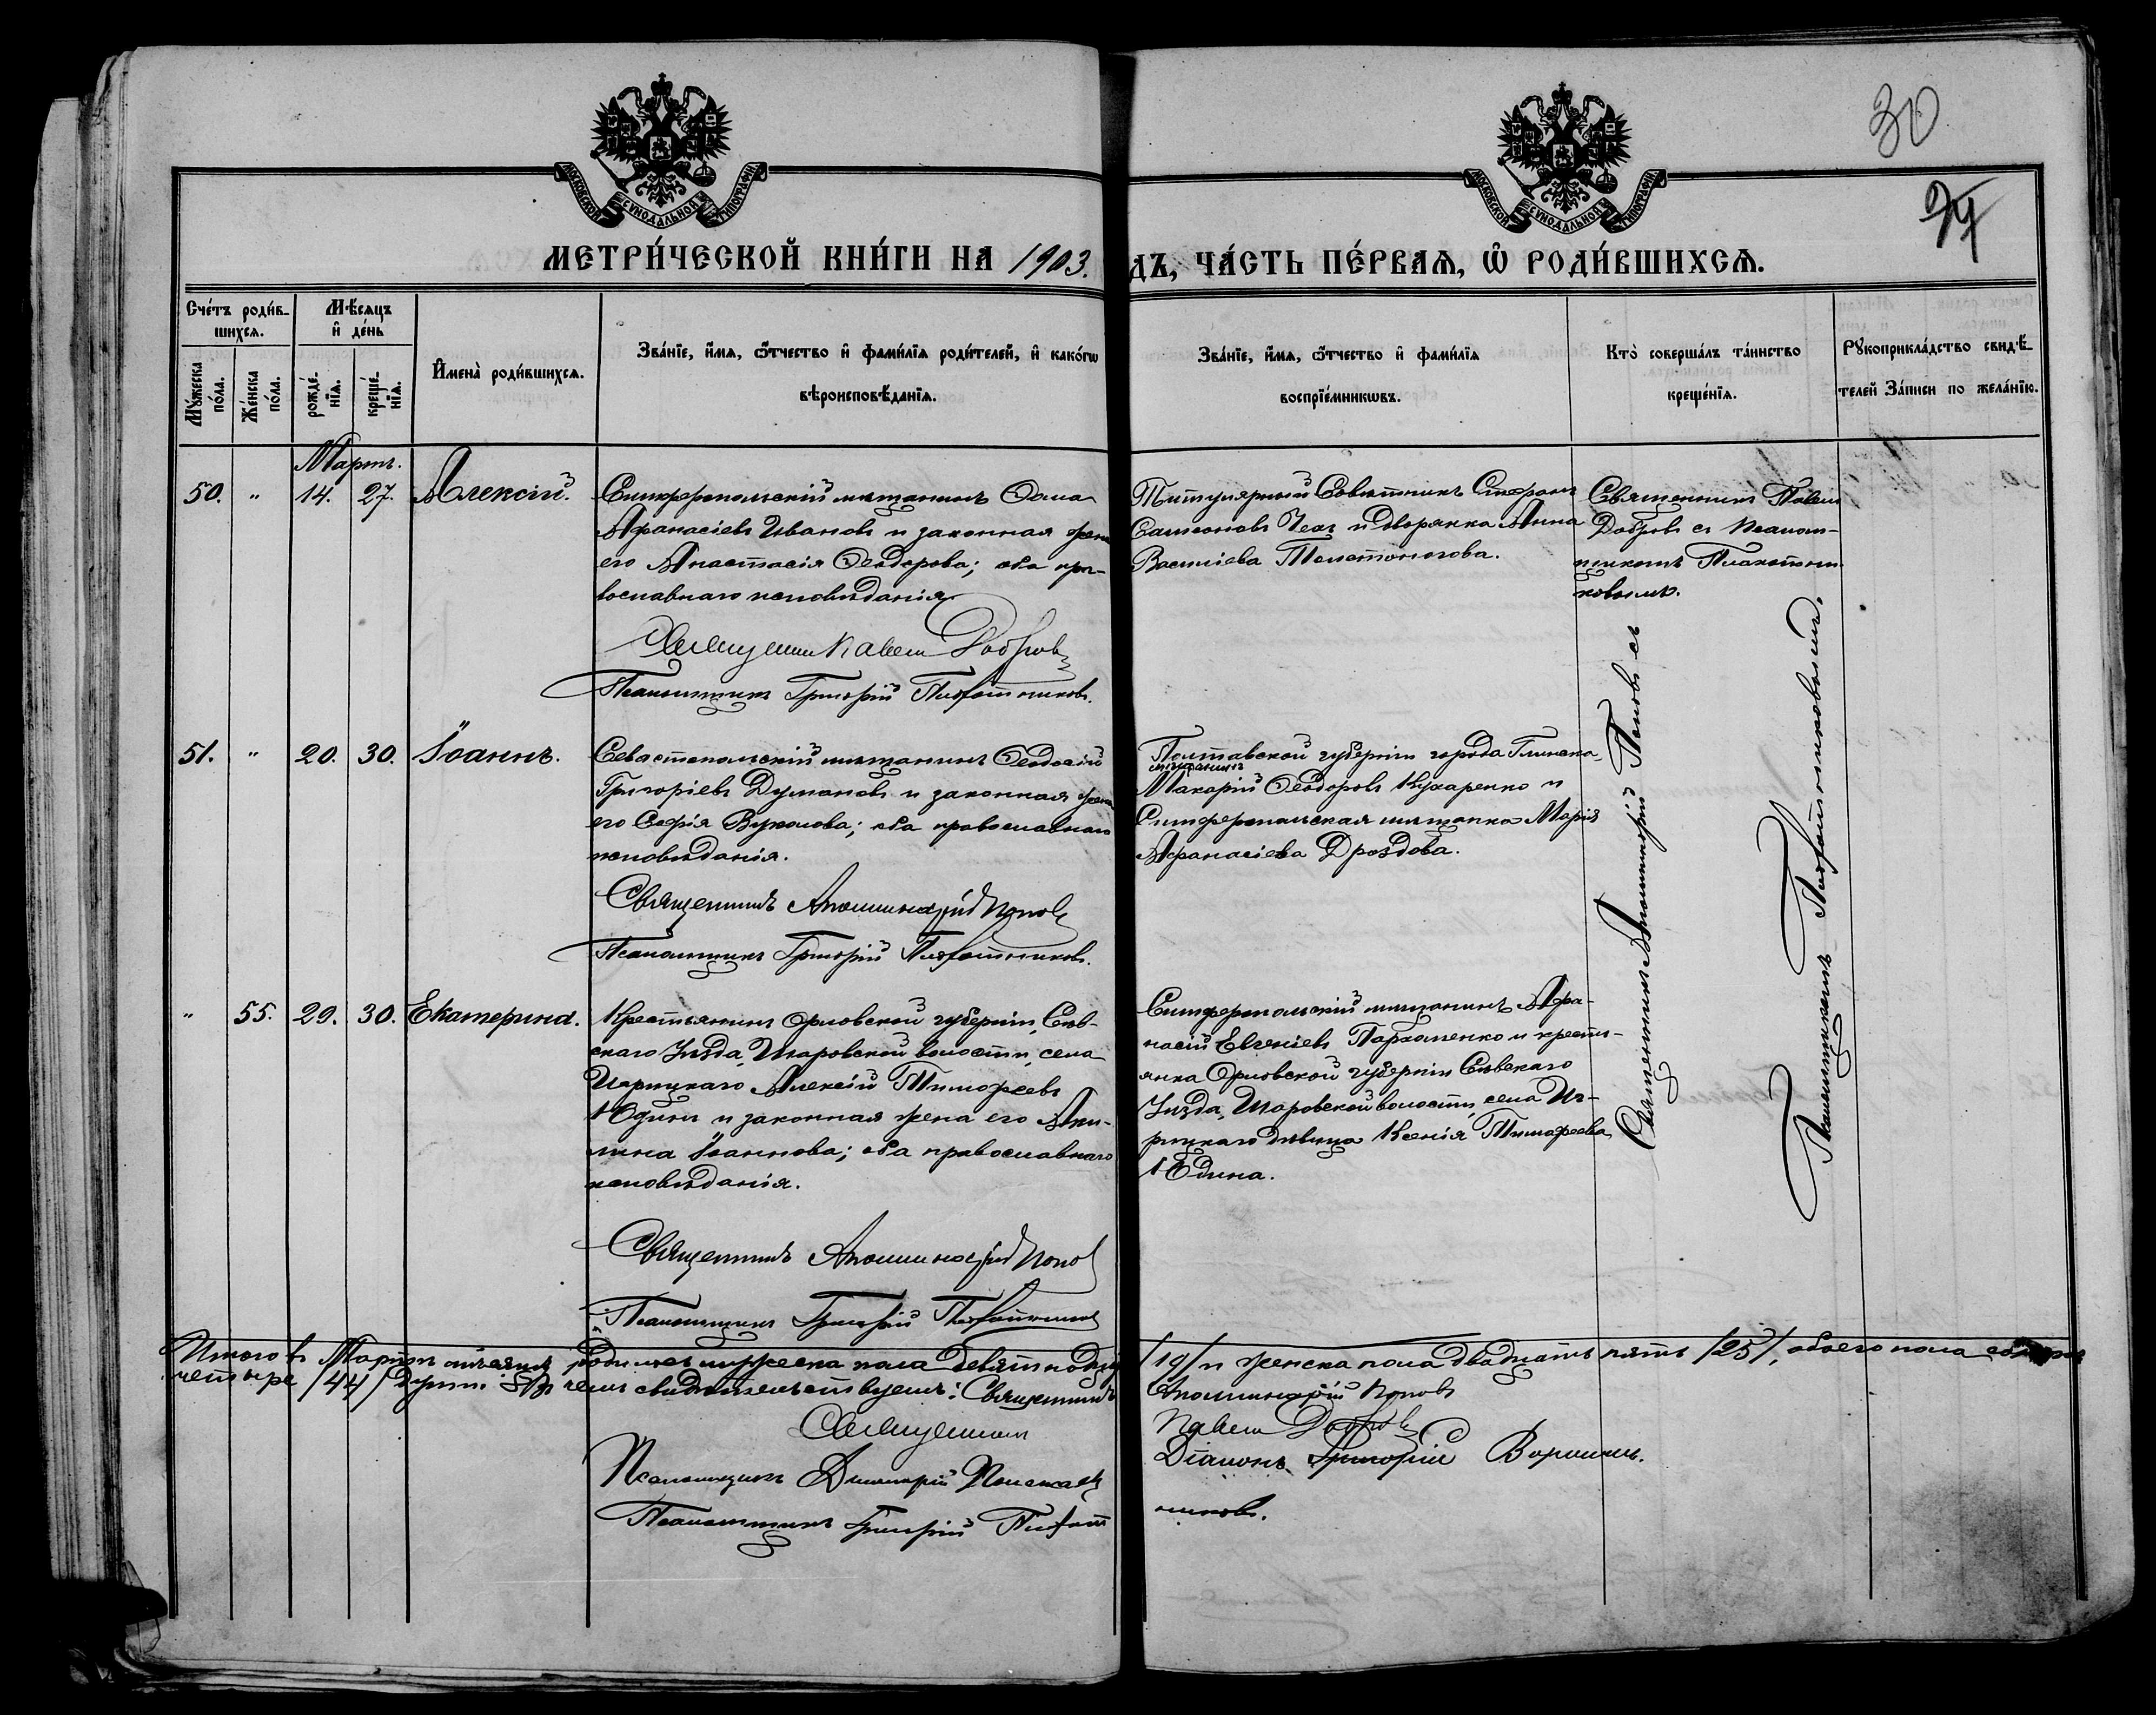 30
МОСКОВСКОЙ СѴНОДАЛЬНОЙ ТИПОГРАФІИ
МОСКОВСКОЙ СѴНОДАЛЬНОЙ ТИПОГРАФІИ
МЕТРИ́ЧЕСКОЙ КНИ́ГИ НА 1903.
ДЪ, ЧА́СТЬ ПЕ́РВАЯ, Ѡ РОДИ́ВШИХСЯ.
Сче́тъ роди́в-
шихся.
Мѣ́сяцъ
и҆ де́нь
Му́жеска
по́ла.
Же́нска
по́ла.
рожде́-
нїя.
креще́-
нїя.
И҆мена̀ роди́вшихся.
Зва́нїе, и҆́мя, ѻ҆́тчество и҆ фами́лїя роди́телей, и҆ како́гѡ
вѣроисповѣ́данїя.
Зва́нїе, и҆́мя, ѻ҆́тчество и҆ фами́лїя
воспрїе́мникѡвъ.
Кто̀ соверша́лъ та́инство
креще́нїя.
Рꙋкоприкла́дство свидѣ́-
телей За́писи по жела́нїю.
Мартъ.
50. " 14. 27. Алексій.
Симферопольскій мѣщанинъ Ѳома
Афанасіевъ Ивановъ и законная жена
его Анастасія Ѳеодорова; оба пра-
вославнаго исповѣданія.
Священникъ Павелъ Добровъ
Псаломщикъ Григорій Плахотниковъ.
Титулярный Совѣтникъ Стефанъ
Самсоновъ и дворянка Анна
Василіева Толстоногова.
Священникъ Павелъ
Добровъ съ псалом-
щикомъ Плахотни-
ковымъ.
51. " 20. 30. Іоаннъ.
Севастопольскій мѣщанинъ Ѳеодосій
Григоріевъ Думановъ и законная жена
его Софія Вуколова; оба православнаго
исповѣданія.
Священникъ Аполлинарій Поповъ
Псаломщикъ Григорій Плахотниковъ.
Полтавской губерніи города Глинска
мѣщанинъ
Макарій Ѳеодоровъ Кухаренко и
Симферопольская мѣщанка Марія
Афанасіева Дроздова.
Священникъ Аполлинарій Поповъ съ
Псаломщикомъ Плахотниковымъ.
" 55. 29. 30. Екатерина.
Крестьянинъ Орловской губерніи, Сѣв-
скаго Уѣзда, Шаровской волости, села
Игрицкаго Алексій Тимофеевъ
Юдинъ и законная жена его Аки-
лина Іоаннова; оба православнаго
исповѣданія.
Священникъ Аполлинарій Попов
Псаломщикъ Григорій Плахотников
Симферопольскій мѣщанинъ Афа-
насій Евгеніевъ Пархоменко и кресть-
янка Орловской губерніи Сѣвскаго
Уѣзда, Шаровской волости, села Иг-
рицкаго дѣвица Ксенія Тимофеева
Юдина.
Итого въ Мартѣ мѣсяцѣ родилось мужеска пола девятнадца
/19/ и женска пола двадцать пять /25/, обоего пола
четыре /44/ душъ. Въ чемъ свидѣтельствуемъ: Священникъ
Аполлинарій Поповъ
Священникъ
Павелъ Добровъ
Діаконъ Григорій
Псаломщикъ Димитрій
Псаломщикъ Григорій Плахот
никовъ.